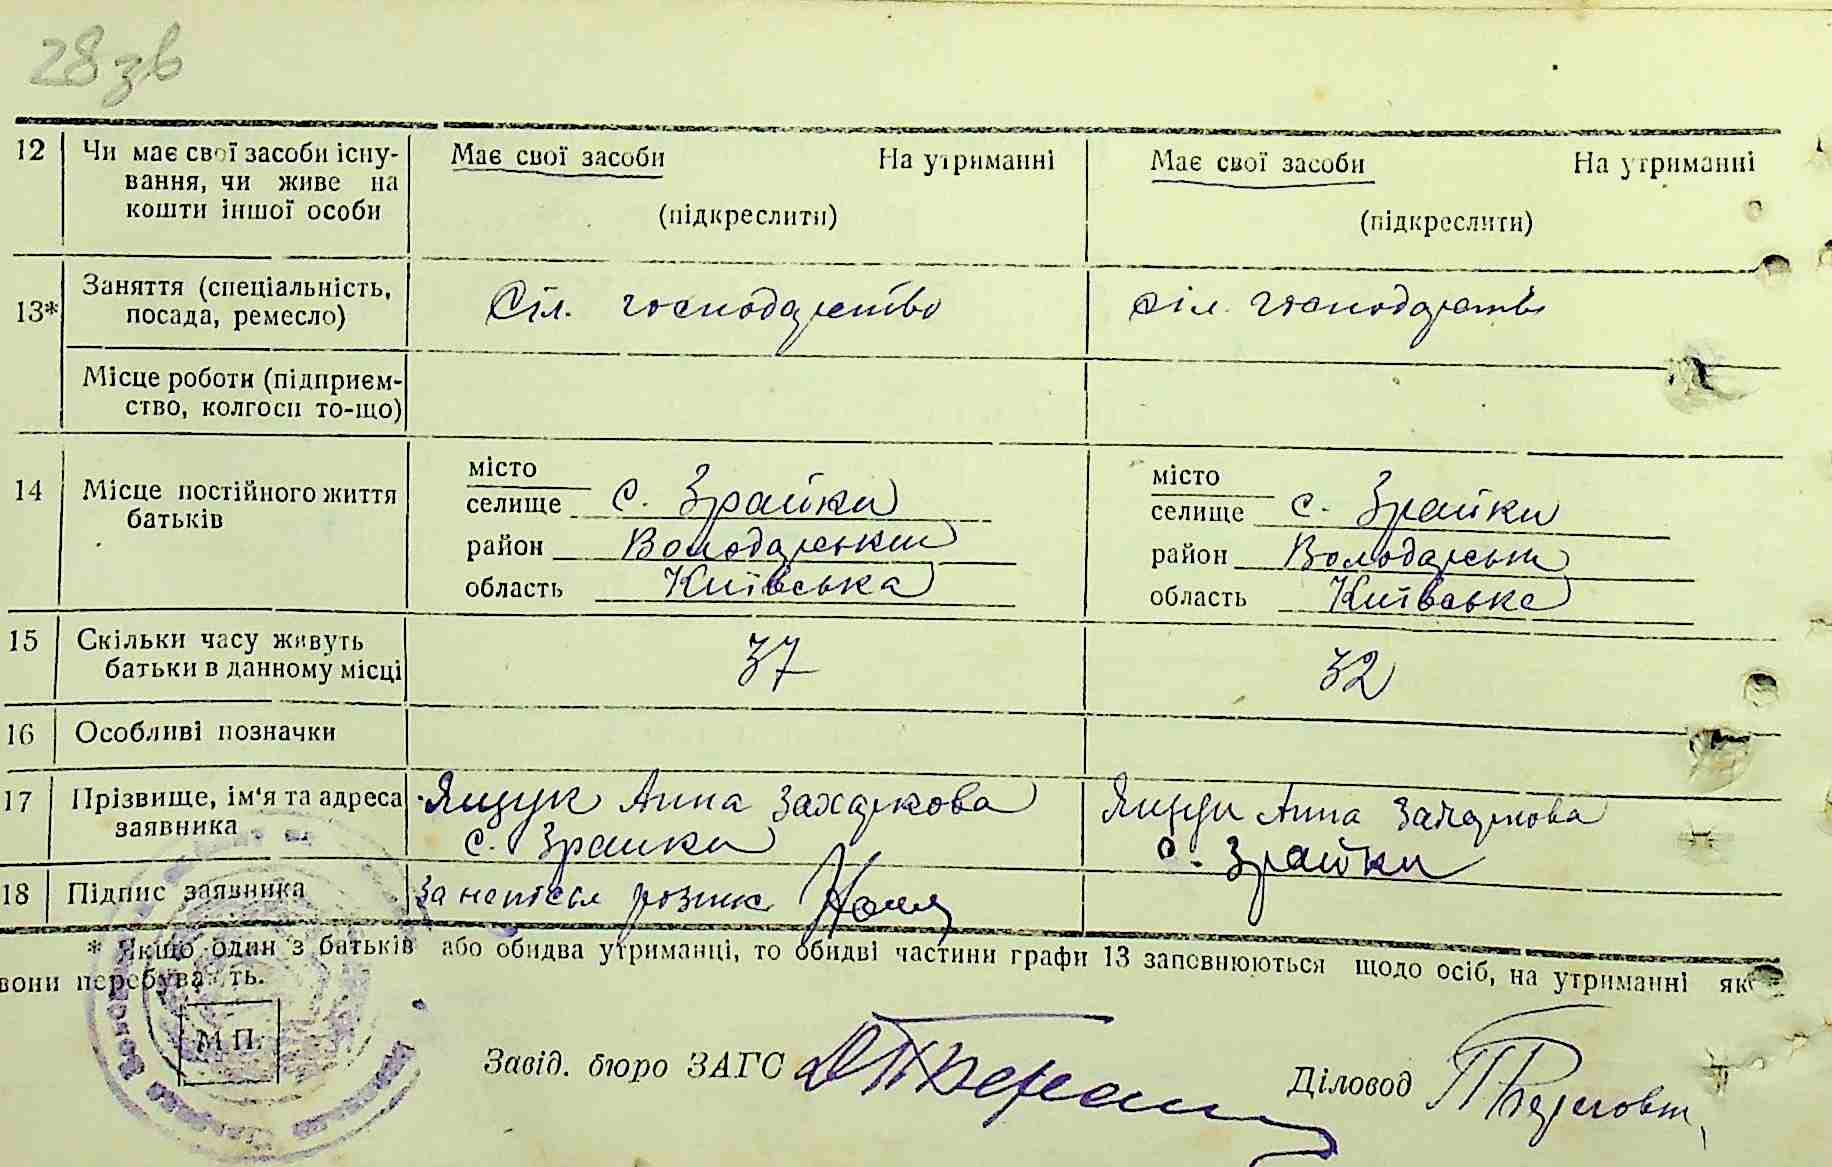 28зв
12 Чи має свої засоби існу- Має свої засоби На утриманні Має свої засоби На утриманні
вання, чи живе на
кошти іншої особи (підкреслити) (підкреслити)
13* Заняття (спеціальність, Сіл. господарство сіл. господарство
посада, ремесло)
Місце роботи (підприєм-
ство, колгосп то-що)
14 Місце постійного життя місто місто
батьків селище с. Зрайки селище с. Зрайки
район Володарський район Володарськи
область Київська область Київська
15 Скільки часу живуть 37 32
батьки в данному місці
16 Особливі позначки
17 Прізвище, ім'я та адреса Ящук Анна Захаркова Ящук Анна Захаркова
заявника с. Зрайки с. Зрайки
18 Підпис заявника За
* Якщо один з батьків або обидва утриманці, то обидві частини графи 13 заповнюються щодо осіб, на утриманні як
вони перебува ть.
М П.
Завід. бюро ЗАГС Діловод